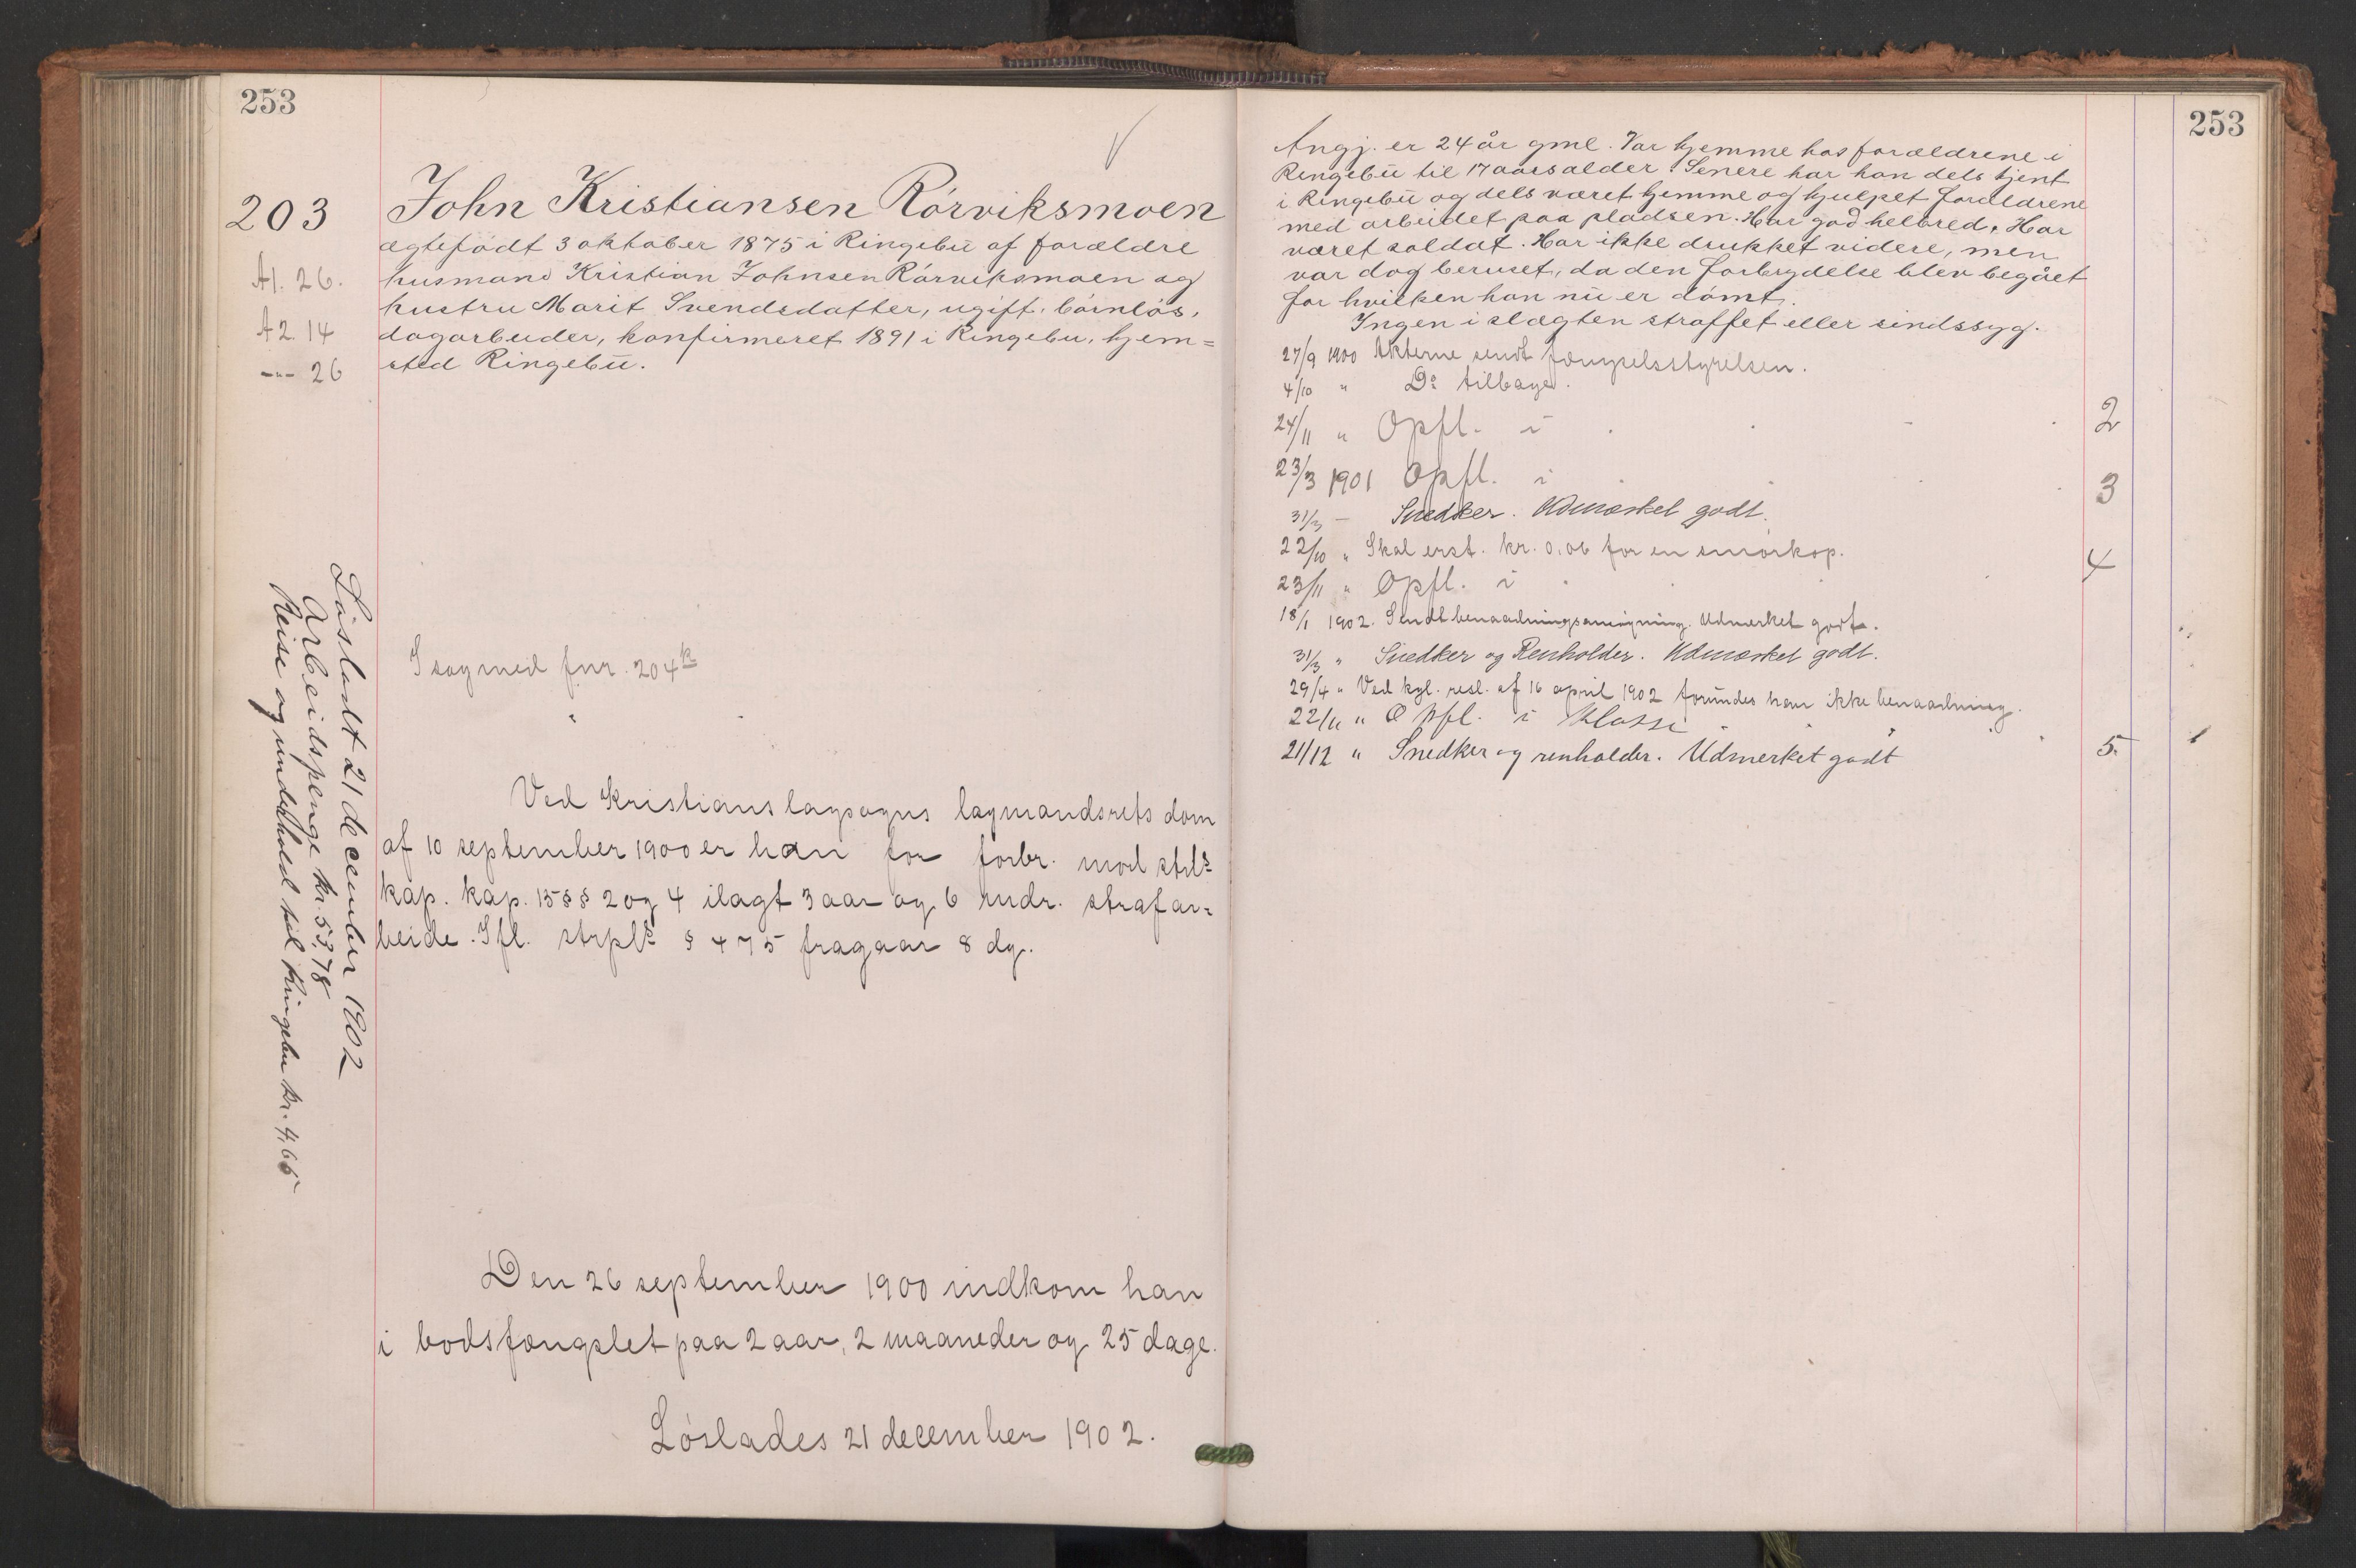 253
203
A1. 26.
A2. 14
-"- 26
John Kristiansen Rórviksmoen
ægtefödt 3 oktober 1875 i Ringebu af forældre
husmand Kristian Johnsen Rórviksmoen og
hustru Marit Svendsdatter, ugift, bórnlós,
dagarbeider, konfirmeret 1891 i Ringebu, hjem=
sted Ringebu.
I sag med fnr. 204
Ved Kristians lagsogns lagmandsrets dom
af 10 september 1900 er han for forbr. mod
kap. kap. 15 §§ 2 og 4 ilagt 3 aar og 6 mdr. strafar=
beide. Ifl. strpls § 475 fragaar 8 dg.
Den 26 september 1900 indkom han
i bodsfængslet paa 2 aar, 2 maaneder og 25 dage.
Lóslades 21 december 1902.
Lósladt 21 december 1902
Arbeidspenge kr. 53.78
Reise og underhold til Ringebu kr. 4,66
253
Angj. er 24 år gml. Var hjemme hos forældrene i
Ringebu til 17 aarsalder. Senere har han dels tjent
i Ringebu og dels været hjemme og hjulpet forældrene
med arbeidet paa pladsen. Har god helbred. Har
været soldat. Har ikke drukket videre, men
var dog beruset, da den forbrydelse blev begået
for hvilken han nu er dómt.
Ingen i slægten straffet eller sindssyg.
27/9 1900 Akterne sendt fængselsstyrelsen.
4/10 " Do tilbage.
24/11 " Opfl. i 2
23/3 1901 Opfl. i 3
31/3 - Snedker. Udmærket godt.
22/10 " Skal erst. kr. 0.06 for en smórkop.
23/11 " Opfl. i 4
18/1 1902. Sendt benaadningsansögning. Udmerket godt.
31/3 " Snedker og Renholder. Udmærket godt.
29/4 " Ved kgl. resl. af 16 april 1902 forundes han ikke benaadning.
22/11 " Opfl. i Klasse 5.
21/12 " Snedker og renholder. Udmerket godt